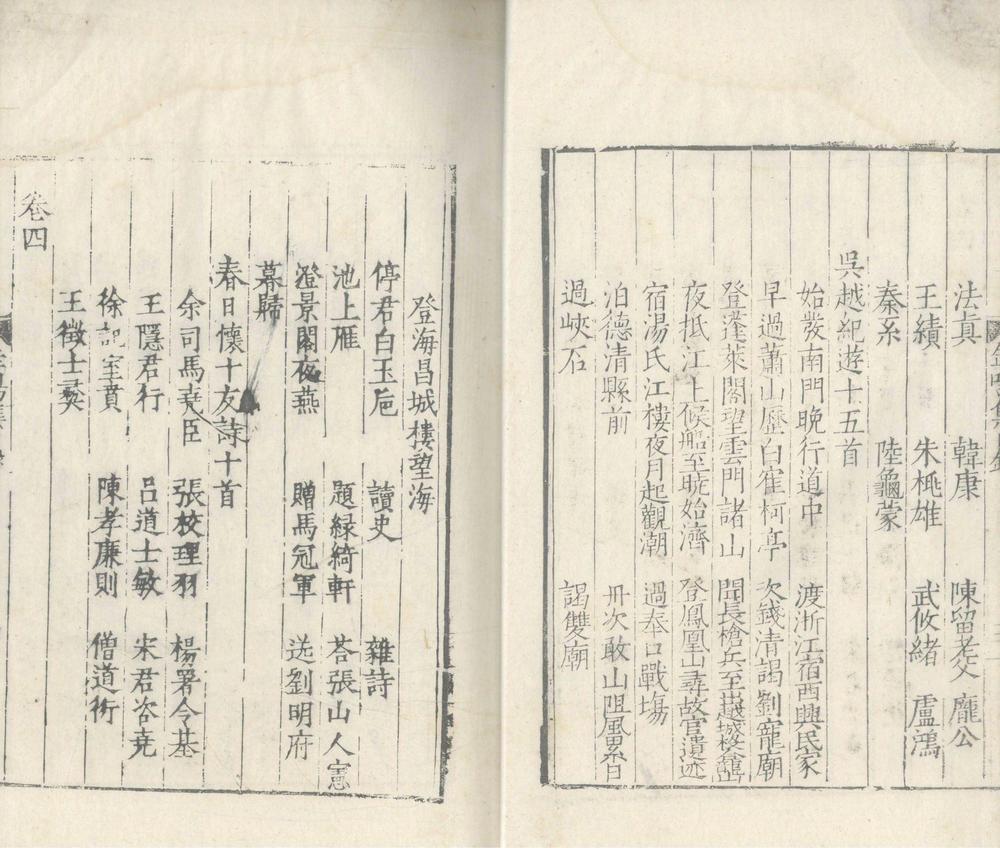 法眞 韓康 陳留老父 龐公
王績 朱桃雄 武攸緒 盧鴻
秦系 陸龜蒙
吳越紀遊十五首
始發南門晚行道中 渡浙江宿西興民家
早過蕭山歷白寉柯亭 次錢清謁劉寵廟
登蓬萊閣望雲門諸山 聞長槍兵至出越城
夜抵江上候船至曉始濟 登鳳凰山尋故宫遺迹
宿湯氏江樓夜月起觀潮 過奉口戰塲
泊德清縣前 舟次敢山阻風累日
過峽石 謁雙廟
登海昌城樓望海
停君白玉巵 讀史 雜詩
池上雁 題緑綺軒 荅張山人憲
澄景閣夜燕 贈馬冠軍 送劉明府
暮歸
春日懷十友詩十首
余司馬堯臣 張校理羽 楊署令基
王隱君行 吕道士敏 宋君咨堯
徐記室賁 陳孝廉則 僧道衍
王徵士彝
卷四